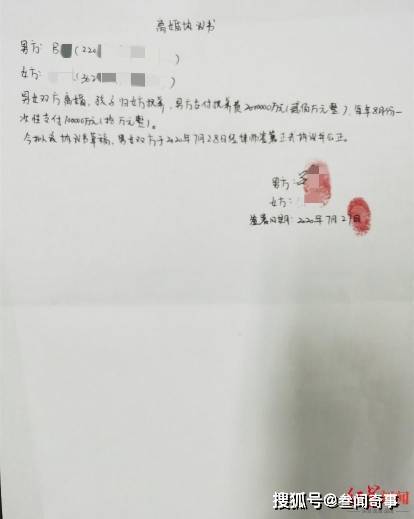 离婚协议书
男方: (220
女方: (362
男女双方离婚，孩子归女方抚养，男方支付抚养费2000000万元(贰佰万元整)，每年8月份一
次性支付100000万元(拾万元整)。
今拟次协议书草稿，男女双方于2020年7月28日经律师签署正式协议并公正。
男方:
女方:
签署日期: 2020年7月27日
搜狐号@叁闻奇事